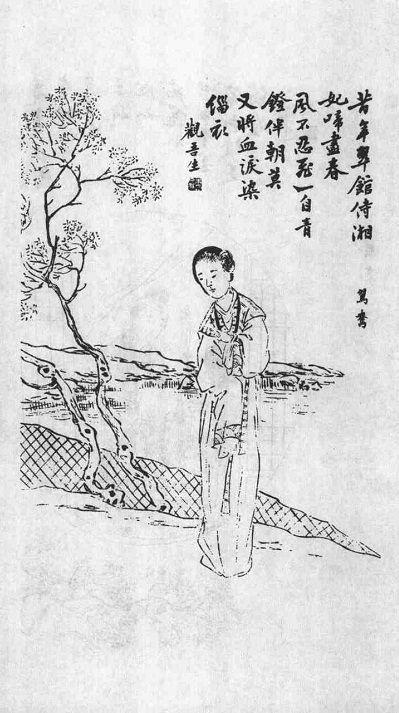 昔年翠館侍湘
妃啼盡春
風不忍飛一自青
鐙伴朝莫
又將血淚染
緇衣
觀吾生